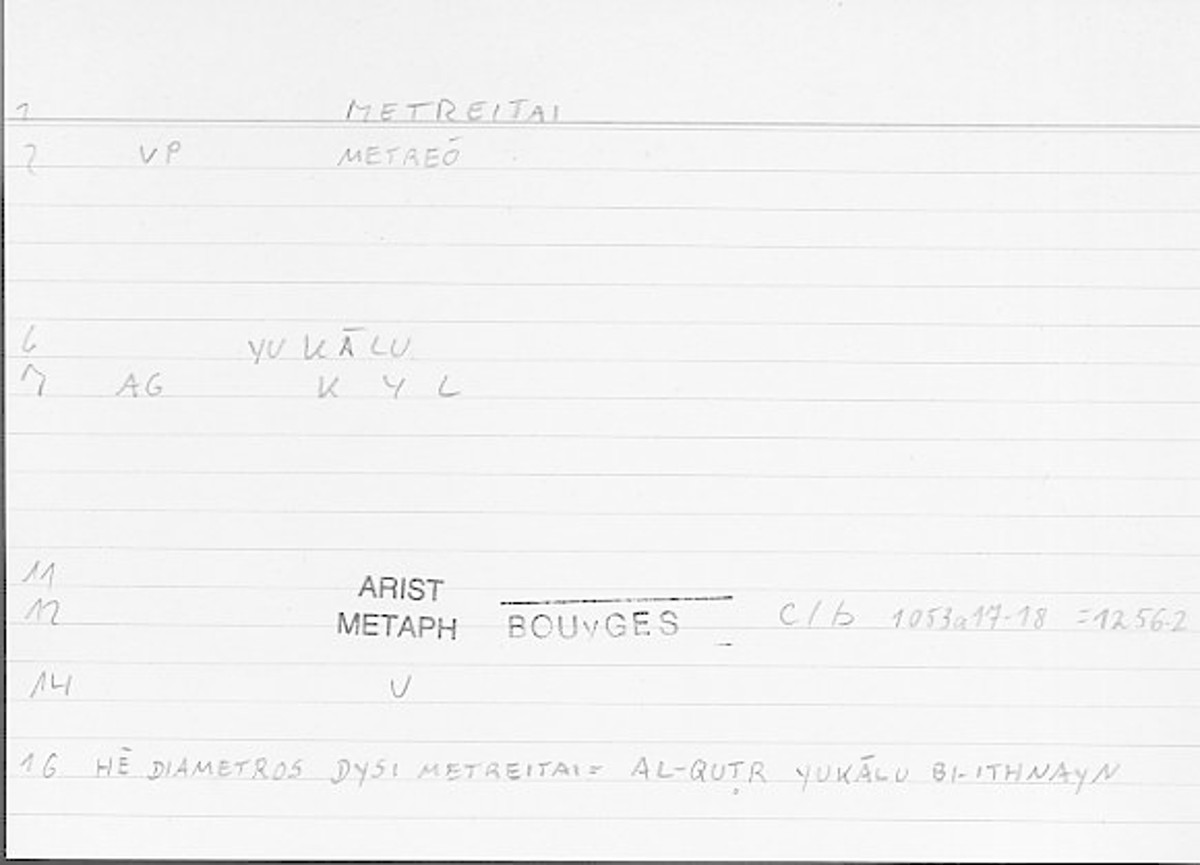 1 METREITAI
2 VP METREŌ
6 YUKĀLU
7 AG K Y L
11 ARIST
12 METAPH BOUyGES C/b 1053a17-18 =1256-2
14 V
16 HĒ DIAMETROS DYSI METREITAI= AL-QUṬR YUKĀLU BI-ITHNAYN